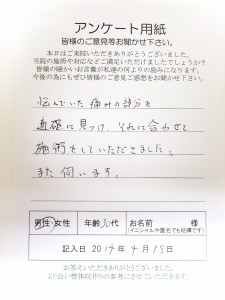 アンケート用紙
皆様のご意見等お聞かせ下さい。
本日はご来院いただきありがとうございます。
当院の施術や対応などご満足いただけましたでしょうか?
皆様の暖かいお言葉が私達の何よりの励みになります。
今後の為にもぜひ皆様のご意見ご感想をお聞かせ下さい。
悩んでいた痛みの部分を
適確に見つけ、それに合わせて
施術をしていただきました。
また伺います。
男性・女性 年齢30代 お名前 様
(イニシャルや匿名でも結構です)
記入日 2014年4月15日
お答えいただきありがとうございました。
より良い整体院作りの参考にさせていただきます。